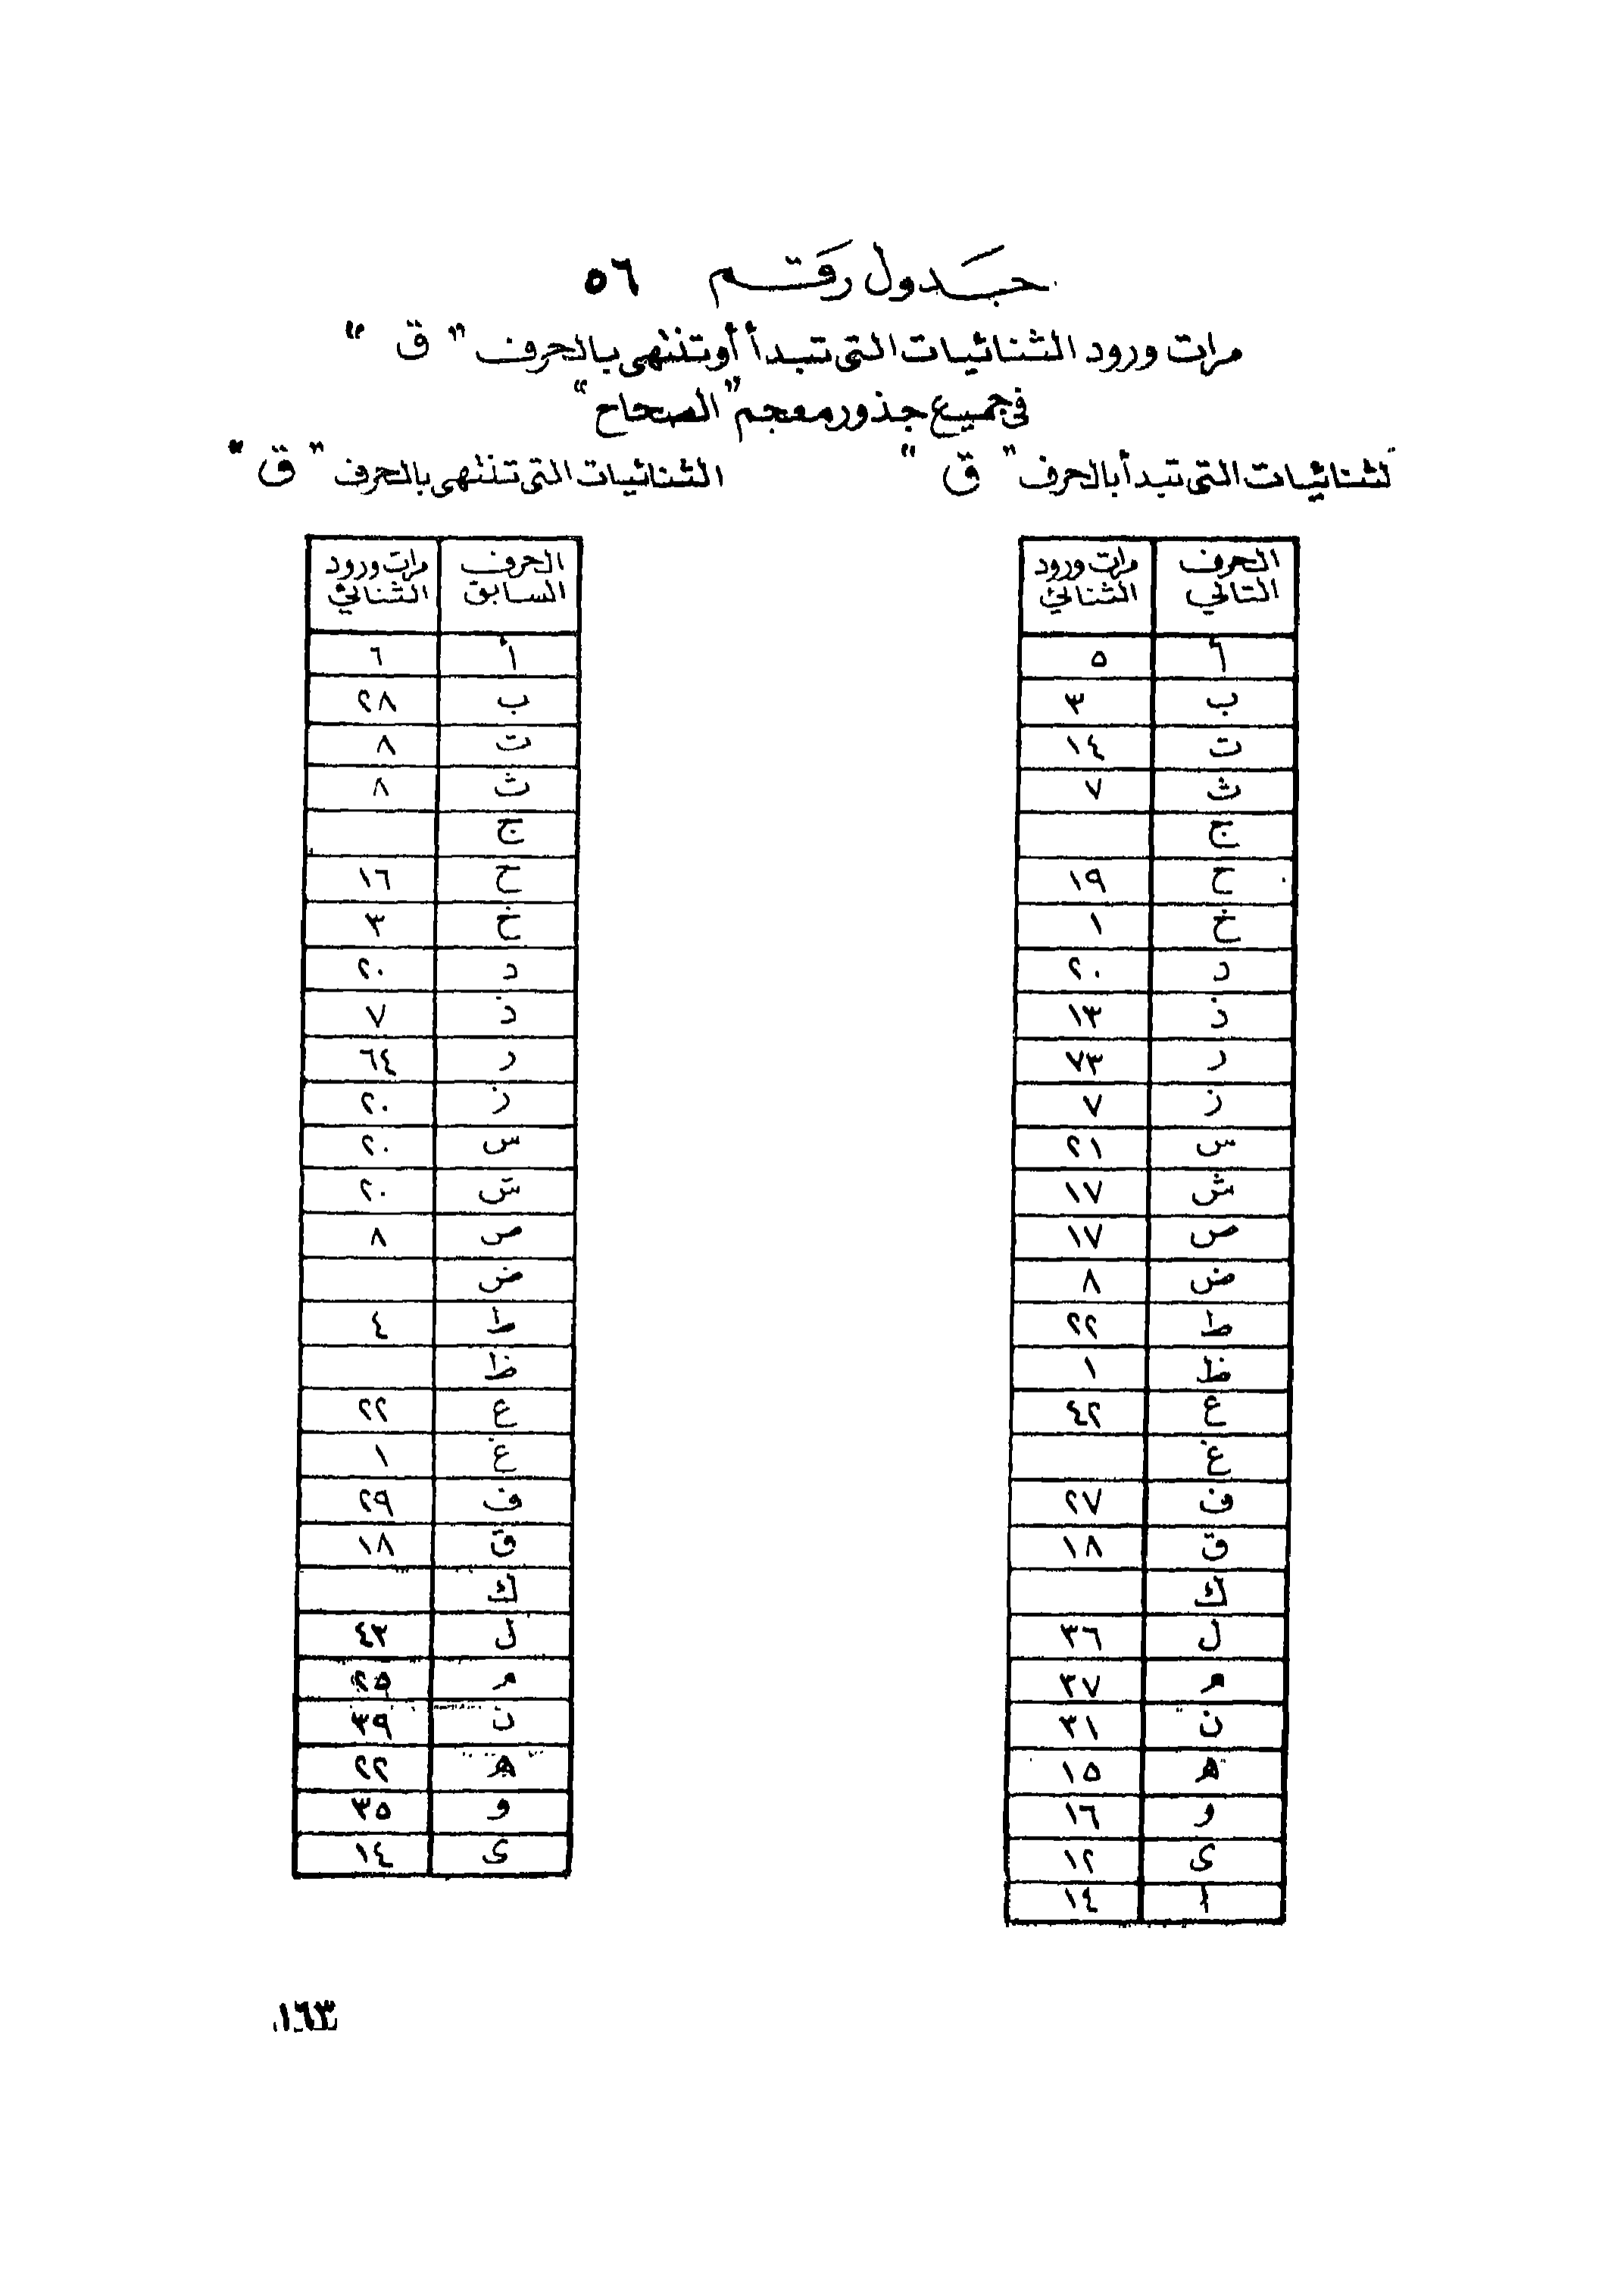 جدول رقم ٥٦
مرات ورود الثنائيات التى تبدأ أو تنتهى بالحرف " ق "
فى جميع جذور معجم "الصحاح"
لثنائيات التى تبدأ بالحرف " ق "
الحرف التالي | مرات ورود الثنائي
أ | ٥
ب | ٣
ت | ١٤
ث | ٧
ج |
ح | ١٩
خ | ١
د | ٢٠
ذ | ١٣
ر | ٧٣
ز | ٧
س | ٢١
ش | ١٧
ص | ١٧
ض | ٨
ط | ٢٢
ظ | ١
ع | ٤٢
غ |
ف | ٢٧
ق | ١٨
ك |
ل | ٣٦
م | ٣٧
ن | ٣١
ه | ١٥
و | ١٦
ى | ١٢
ا | ١٤
الثنائيات التى تنتهى بالحرف " ق "
الحرف السابق | مرات ورود الثنائي
أ | ٦
ب | ٢٨
ت | ٨
ث | ٨
ج |
ح | ١٦
خ | ٣
د | ٢٠
ذ | ٧
ر | ٦٤
ز | ٢٠
س | ٢٠
ش | ٢٠
ص | ٨
ض |
ط | ٤
ظ |
ع | ٢٢
غ | ١
ف | ٢٩
ق | ١٨
ك |
ل | ٤٣
م | ٢٥
ن | ٣٩
ه | ٢٢
و | ٣٥
ى | ١٤
١٦٣